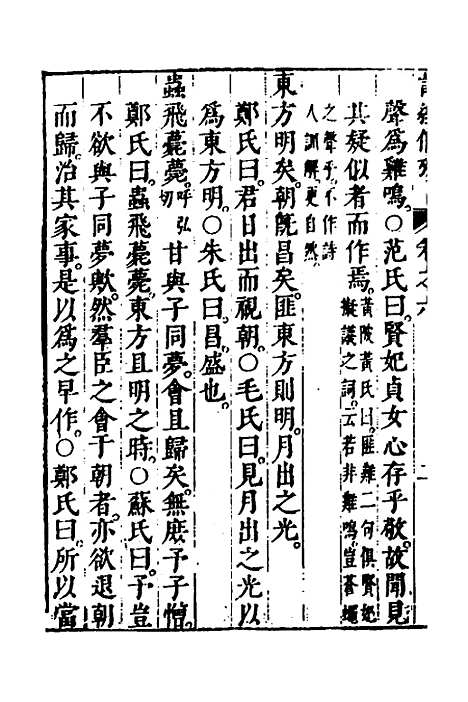 聲爲雞鳴。○范氏曰。賢妃貞女心存乎敬。故聞見
其疑似者而作焉。黃陂黃氏曰。匪雞二句俱賢妃
擬議之詞。云若非雞鳴。豈蒼蠅
之聲乎。不作詩
人訓解更自然。
東方明矣。朝旣昌矣。匪東方則明。月出之光。
鄭氏曰。君日出而視朝。○毛氏曰。見月出之光以
爲東方明。○朱氏曰。昌盛也。
蟲飛薨薨。呼弘
切甘與子同夢。會且歸矣。無庶予子憎。
鄭氏曰。蟲飛薨薨。東方且明之時。○蘇氏曰。予豈
不欲與子同夢歟。然羣臣之會于朝者。亦欲退朝
而歸。治其家事。是以爲之早作。○鄭氏曰。所以當